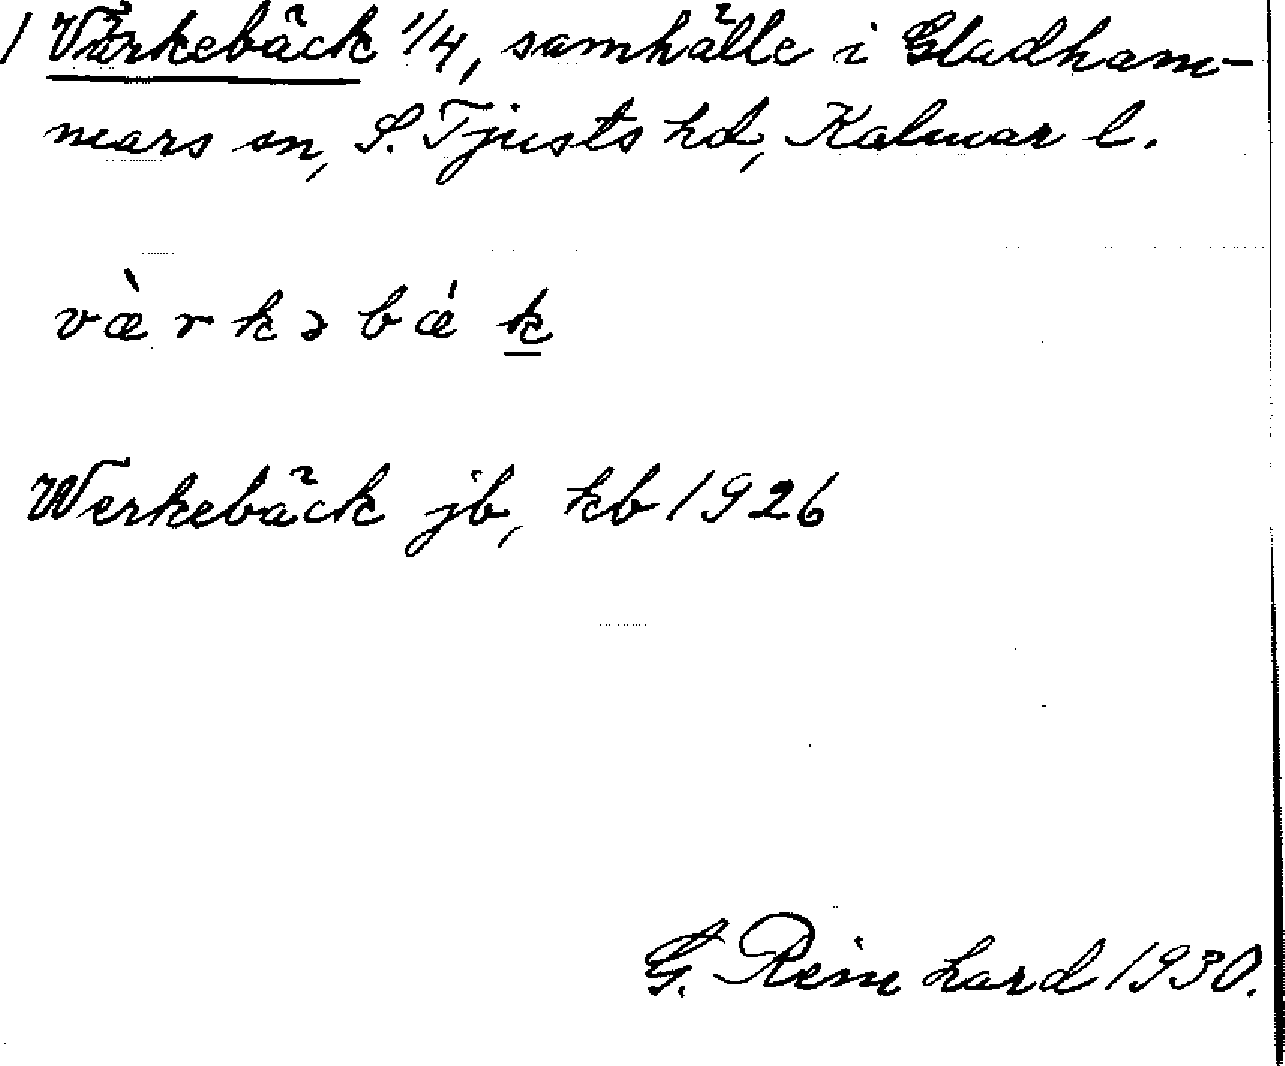 1 Värkebäck 1/4, samhälle i Gladham-
mars sn, S. Tjusts hd, Kalmar l.
væ̀rkəbǽk̲
Werkebäck jb, kb 1926
G. Reinhard 1930.